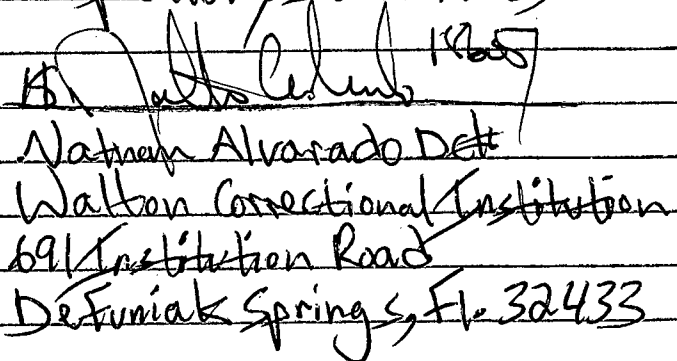 /s/
Nathan Alvarado Dc#
Walton Correctional Institution
691 Institution Road
Defuniak Springs, Fl. 32433